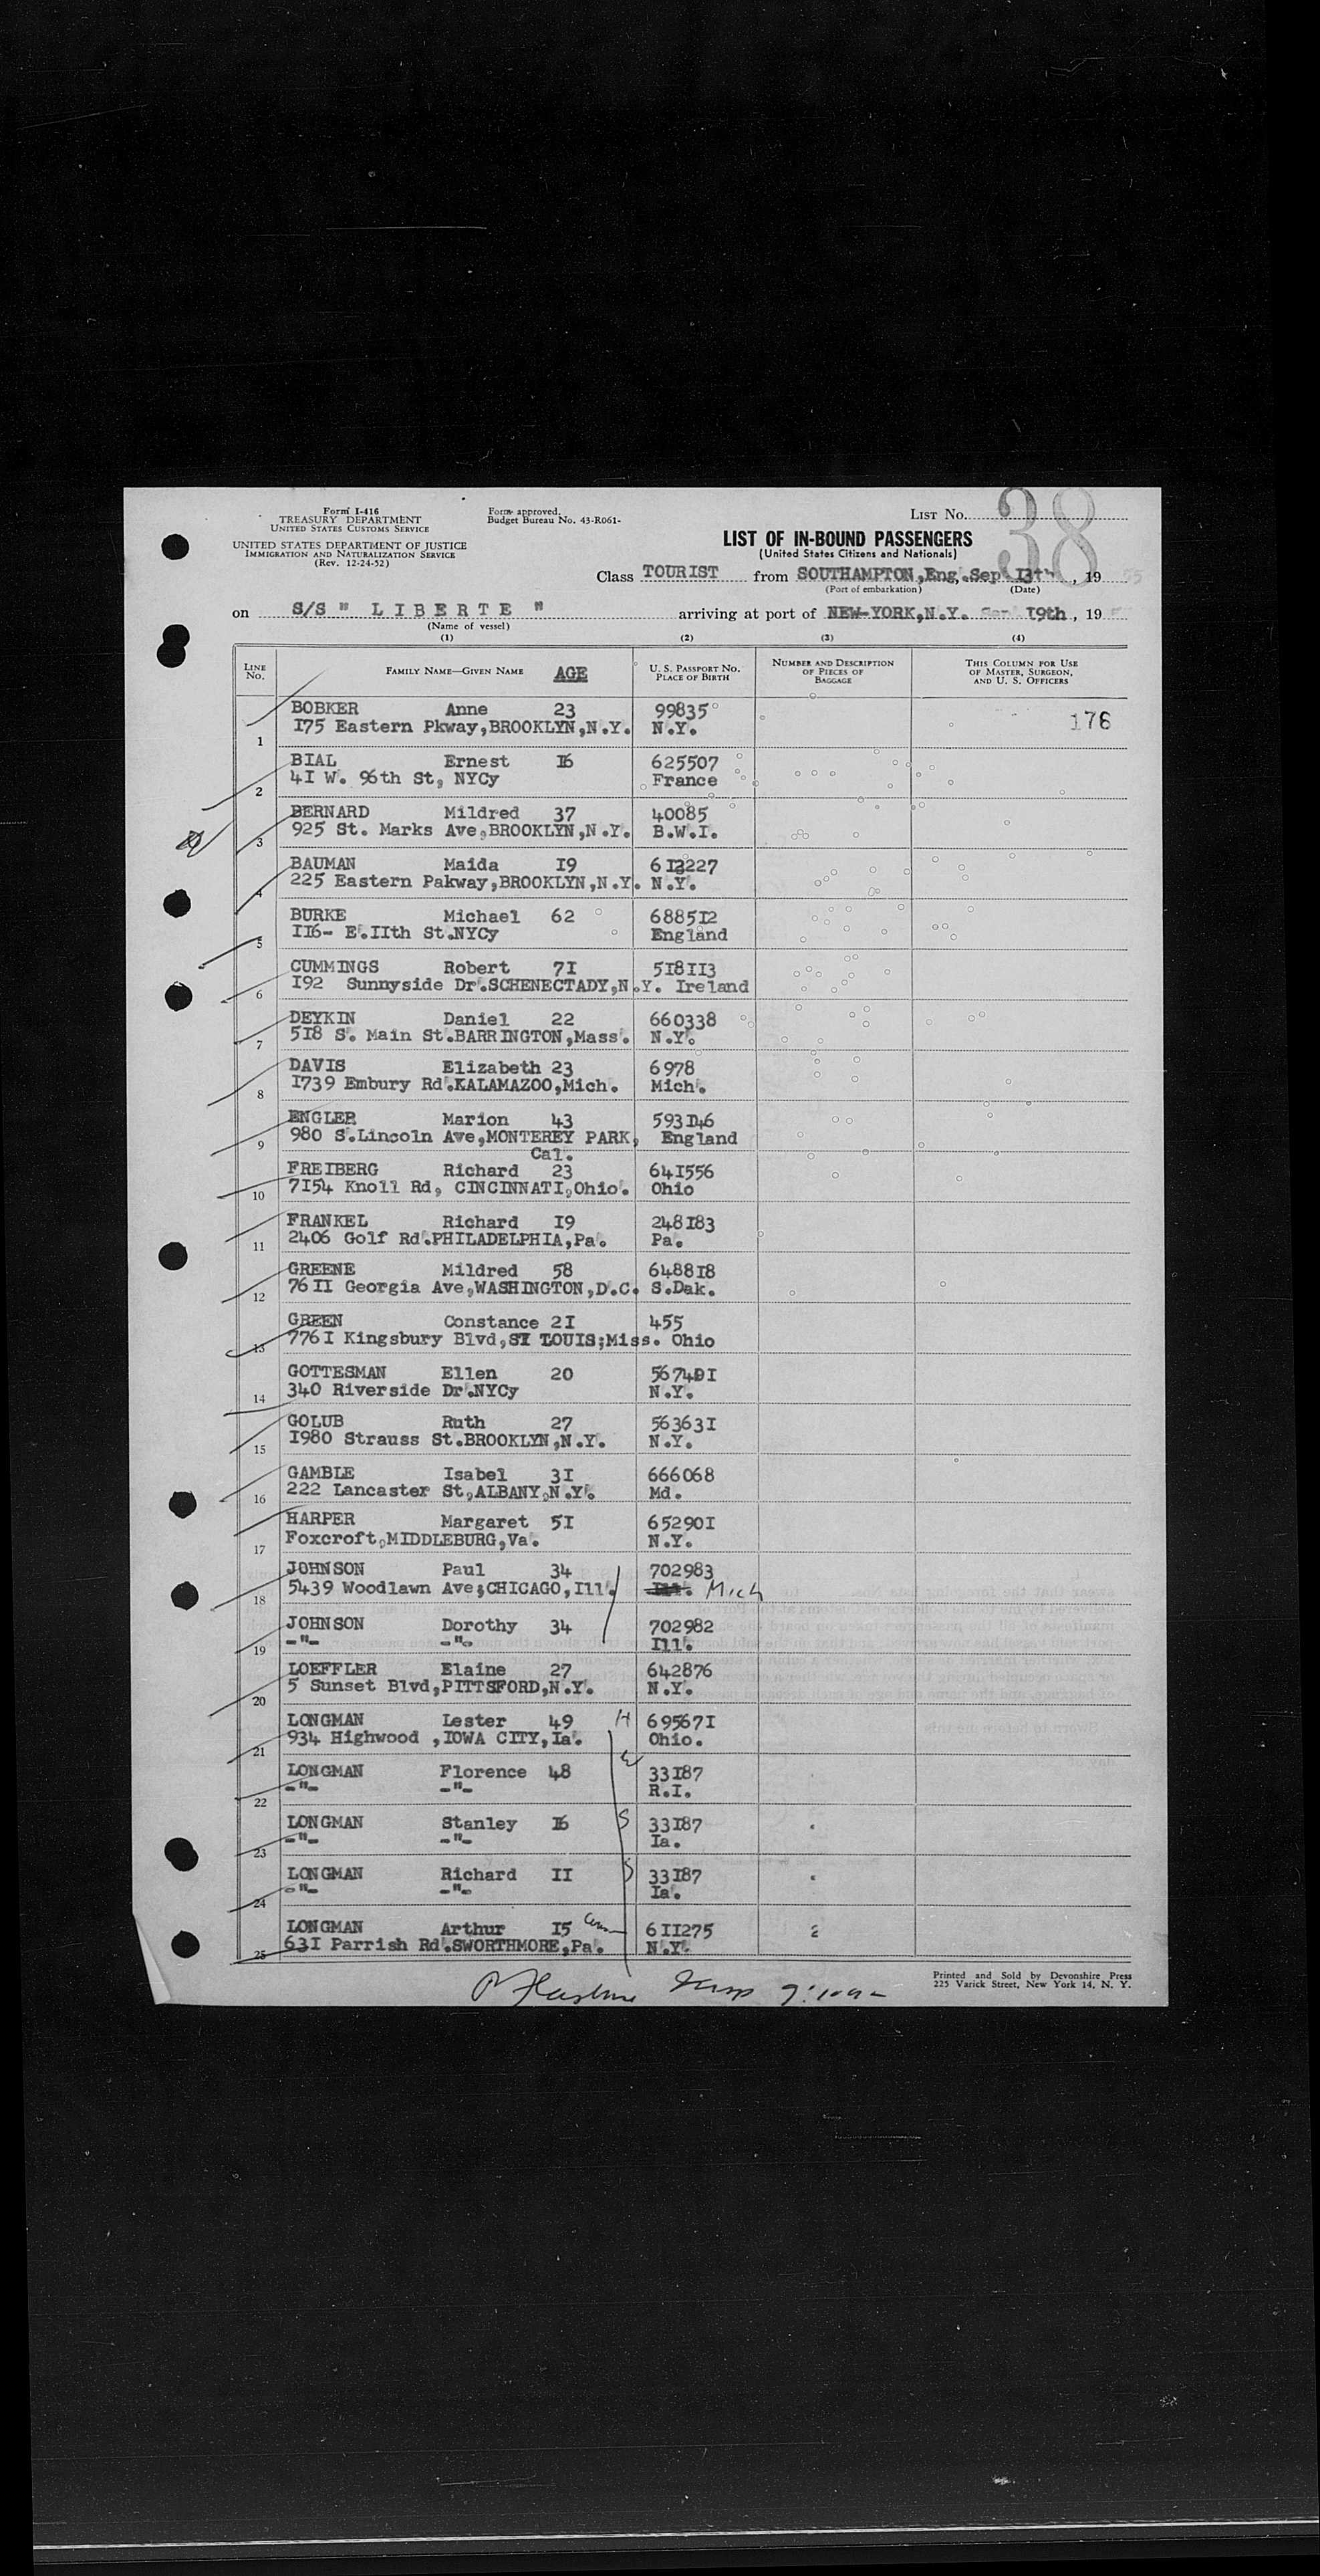 Form I-416
TREASURY DEPARTMENT
UNITED STATES CUSTOMS SERVICE
UNITED STATES DEPARTMENT OF JUSTICE
IMMIGRATION AND NATURALIZATION SERVICE
(Rev. 12-24-52)
Form approved.
Budget Bureau No. 43-R061-
LIST NO. 38
LIST OF IN-BOUND PASSENGERS
(United States Citizens and Nationals)
Class TOURIST from SOUTHAMPTON,Eng,.Sep 13th, 19 55
(Port of embarkation) (Date)
on S/S " LIBERTE " arriving at port of NEW-YORK,N.Y. Sep 19th, 19
(Name of vessel)
(1) (2) (3) (4)
LINE NO. FAMILY NAME—GIVEN NAME AGE U. S. PASSPORT NO. PLACE OF BIRTH NUMBER AND DESCRIPTION OF PIECES OF BAGGAGE THIS COLUMN FOR USE OF MASTER, SURGEON, AND U. S. OFFICERS
BOBKER Anne 23 99835 176
175 Eastern Pkway,BROOKLYN,N.Y. N.Y.
1
BIAL Ernest 16 625507
41 W. 96th St, NYCy France
2
BERNARD Mildred 37 40085
925 St. Marks Ave,BROOKLYN,N.Y. B.W.I.
3
BAUMAN Maida 19 613227
225 Eastern Pakway,BROOKLYN,N.Y. N.Y.
4
BURKE Michael 62 688512
116- E.11th St.NYCy England
5
CUMMINGS Robert 71 518113
192 Sunnyside Dr.SCHENECTADY,N.Y. Ireland
6
DEYKIN Daniel 22 660338
518 S. Main St.BARRINGTON,Mass. N.Y.
7
DAVIS Elizabeth 23 6978
1739 Embury Rd.KALAMAZOO,Mich. Mich.
8
ENGLER Marion 43 593146
980 S.Lincoln Ave,MONTEREY PARK, England
9
Cal.
FREIBERG Richard 23 641556
7154 Knoll Rd, CINCINNATI,Ohio. Ohio
10
FRANKEL Richard 19 248183
2406 Golf Rd.PHILADELPHIA,Pa. Pa.
11
GREENE Mildred 58 648818
7611 Georgia Ave,WASHINGTON,D.C. S.Dak.
12
GREEN Constance 21 455
7761 Kingsbury Blvd,ST LOUIS;Miss. Ohio
13
GOTTESMAN Ellen 20
340 Riverside Dr.NYCy N.Y.
14
GOLUB Ruth 27 563631
1980 Strauss St.BROOKLYN,N.Y. N.Y.
15
GAMBLE Isabel 31 666068
222 Lancaster St,ALBANY,N.Y. Md.
16
HARPER Margaret 51 652901
Foxcroft,MIDDLEBURG,Va. N.Y.
17
JOHNSON Paul 34 702983
5439 Woodlawn Ave;CHICAGO,Ill. Ill. Mich
18
JOHNSON Dorothy 34 702982
-"- -"- Ill.
19
LOEFFLER Elaine 27 642876
5 Sunset Blvd,PITTSFORD,N.Y. N.Y.
20
LONGMAN Lester 49 H 695671
934 Highwood ,IOWA CITY,Ia. Ohio.
21
LONGMAN Florence 48 W 33187
-"- -"- R.I.
22
LONGMAN Stanley 16 S 33187
-"- -"- Ia.
23
LONGMAN Richard 11 S 33187
-"- -"- Ia.
24
LONGMAN Arthur 15 611275 2
631 Parrish Rd.SWORTHMORE,Pa. N.Y.
25
Printed and Sold by Devonshire Press
225 Varick Street, New York 14, N. Y.